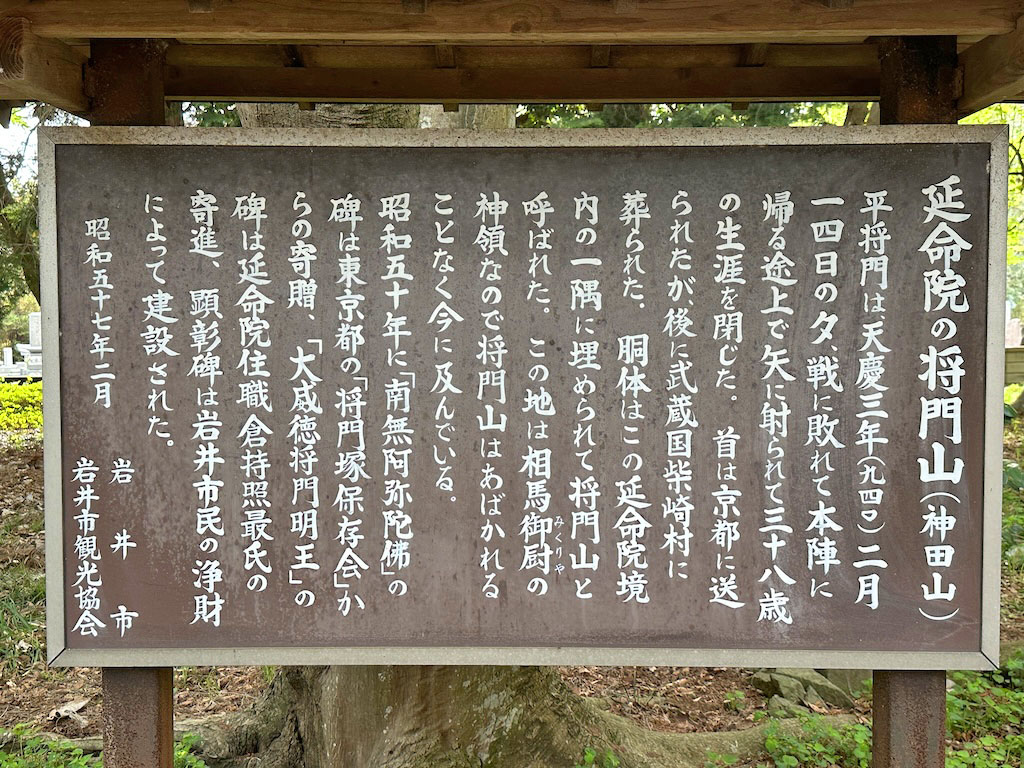 延命院の将門山(神田山)
平将門は、天慶三年(九四〇)二月
一四日の夕、戦に敗れて本陣に
帰る途上で矢に射られて三十八歳
の生涯を閉じた。首は京都に送
られたが、後に武蔵国柴崎村に
葬られた。胴体はこの延命院境
内の一隅に埋められて将門山と
呼ばれた。この地は相馬御厨の
みくりや
神領なので将門山はあばかれる
ことなく今に及んでいる。
昭和五十年に「南無阿弥陀佛」の
碑は東京都の「将門塚保存会」か
らの寄贈、「大威徳将門明王」の
碑は延命院住職倉持照最氏の
寄進、顕彰碑は岩井市民の浄財
によって建設された。
昭和五十七年二月
岩井市
岩井市観光協会